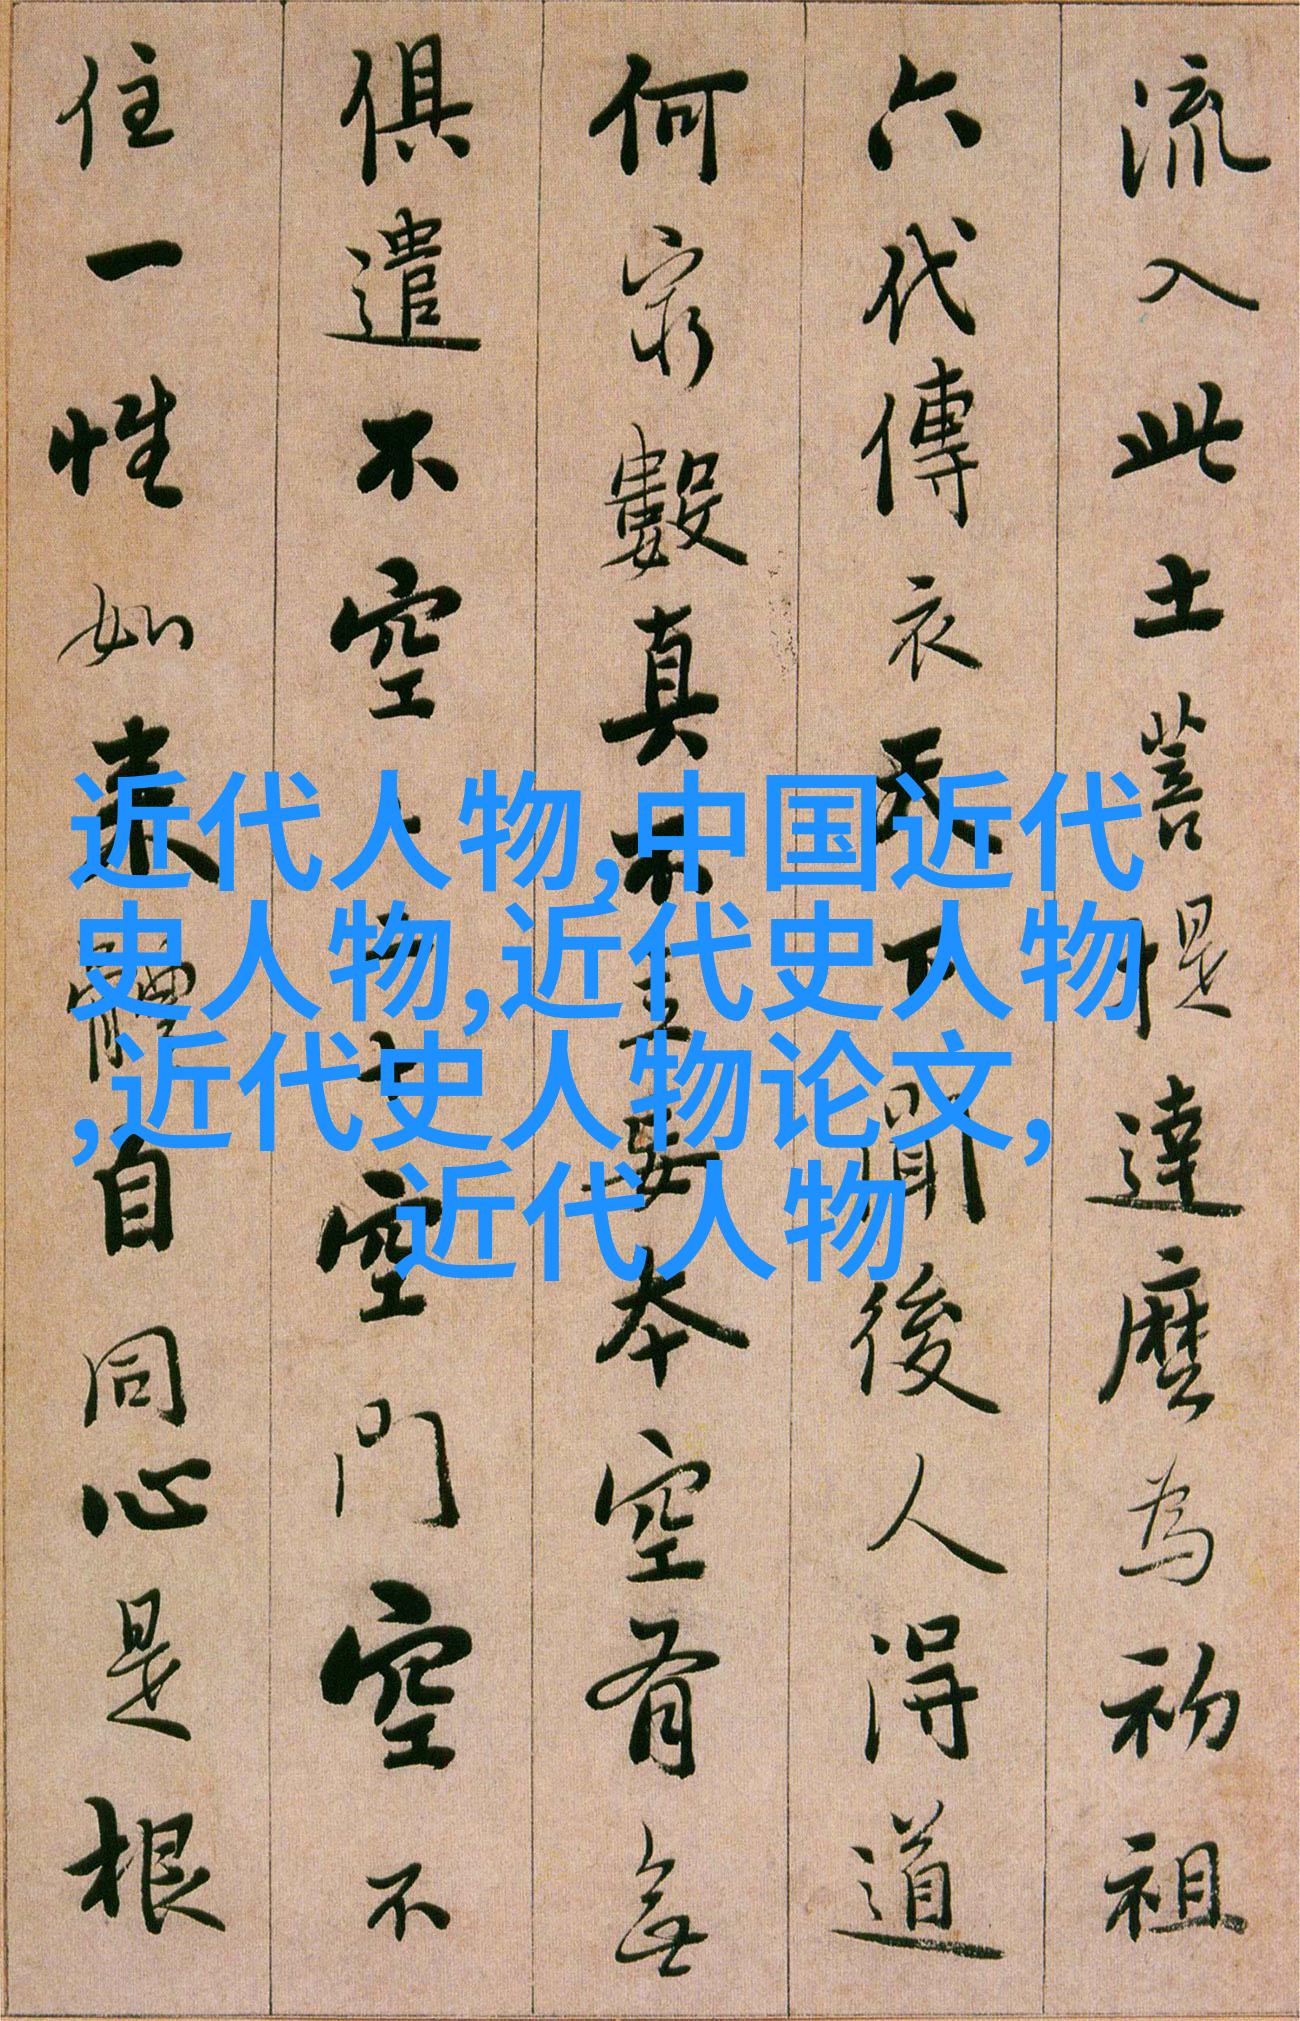 流入此土菩提達磨為初祖
六代傳衣天下聞後人得道
何窮數真不立妄本空有無
俱遣不空空二十空門空不
住一性如來體自同心是根
近代人物,中国近代
史人物,近代史人物
,近代史人物论文,
近代人物